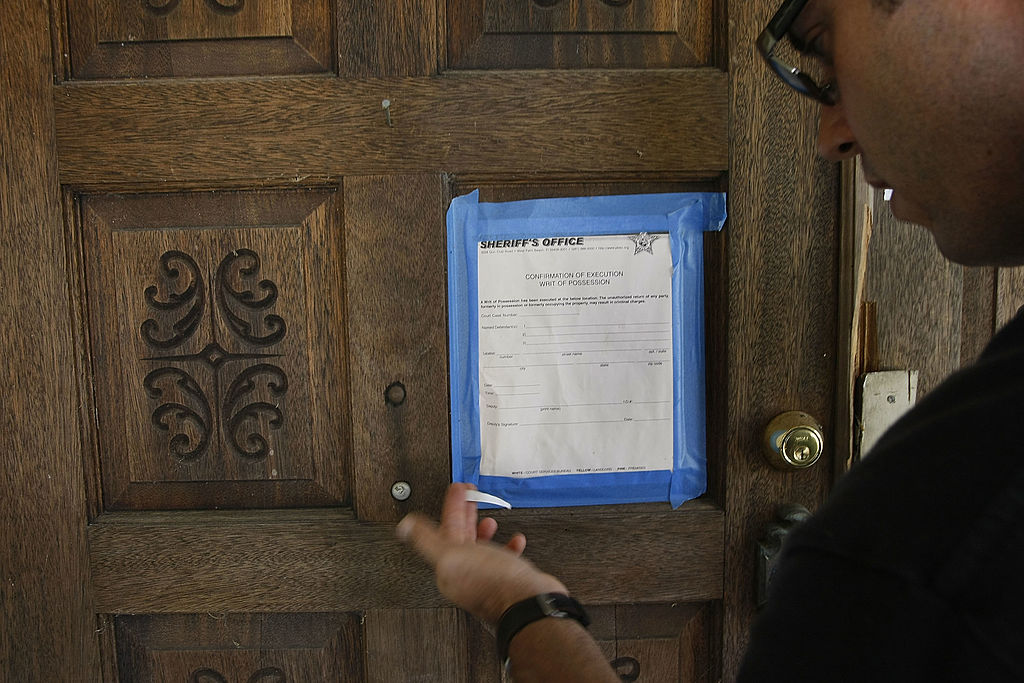 SHERIFF'S OFFICE
CONFIRMATION OF EXECUTION
WRIT OF POSSESSION
A Writ of Possession has been executed at the below location. The unauthorized return of any party
formerly in possession or formerly occupying the property, may result in criminal charges.
Court Case Number:
Named Defendant(s): I.
II.
III.
number street name apt. / suite
city state zip code
Date:
Time:
Deputy: I.D.#:
(print name)
Deputy's Signature: Date:
WHITE - COURT SERVICES BUREAU YELLOW - LANDLORD PINK - PREMISES